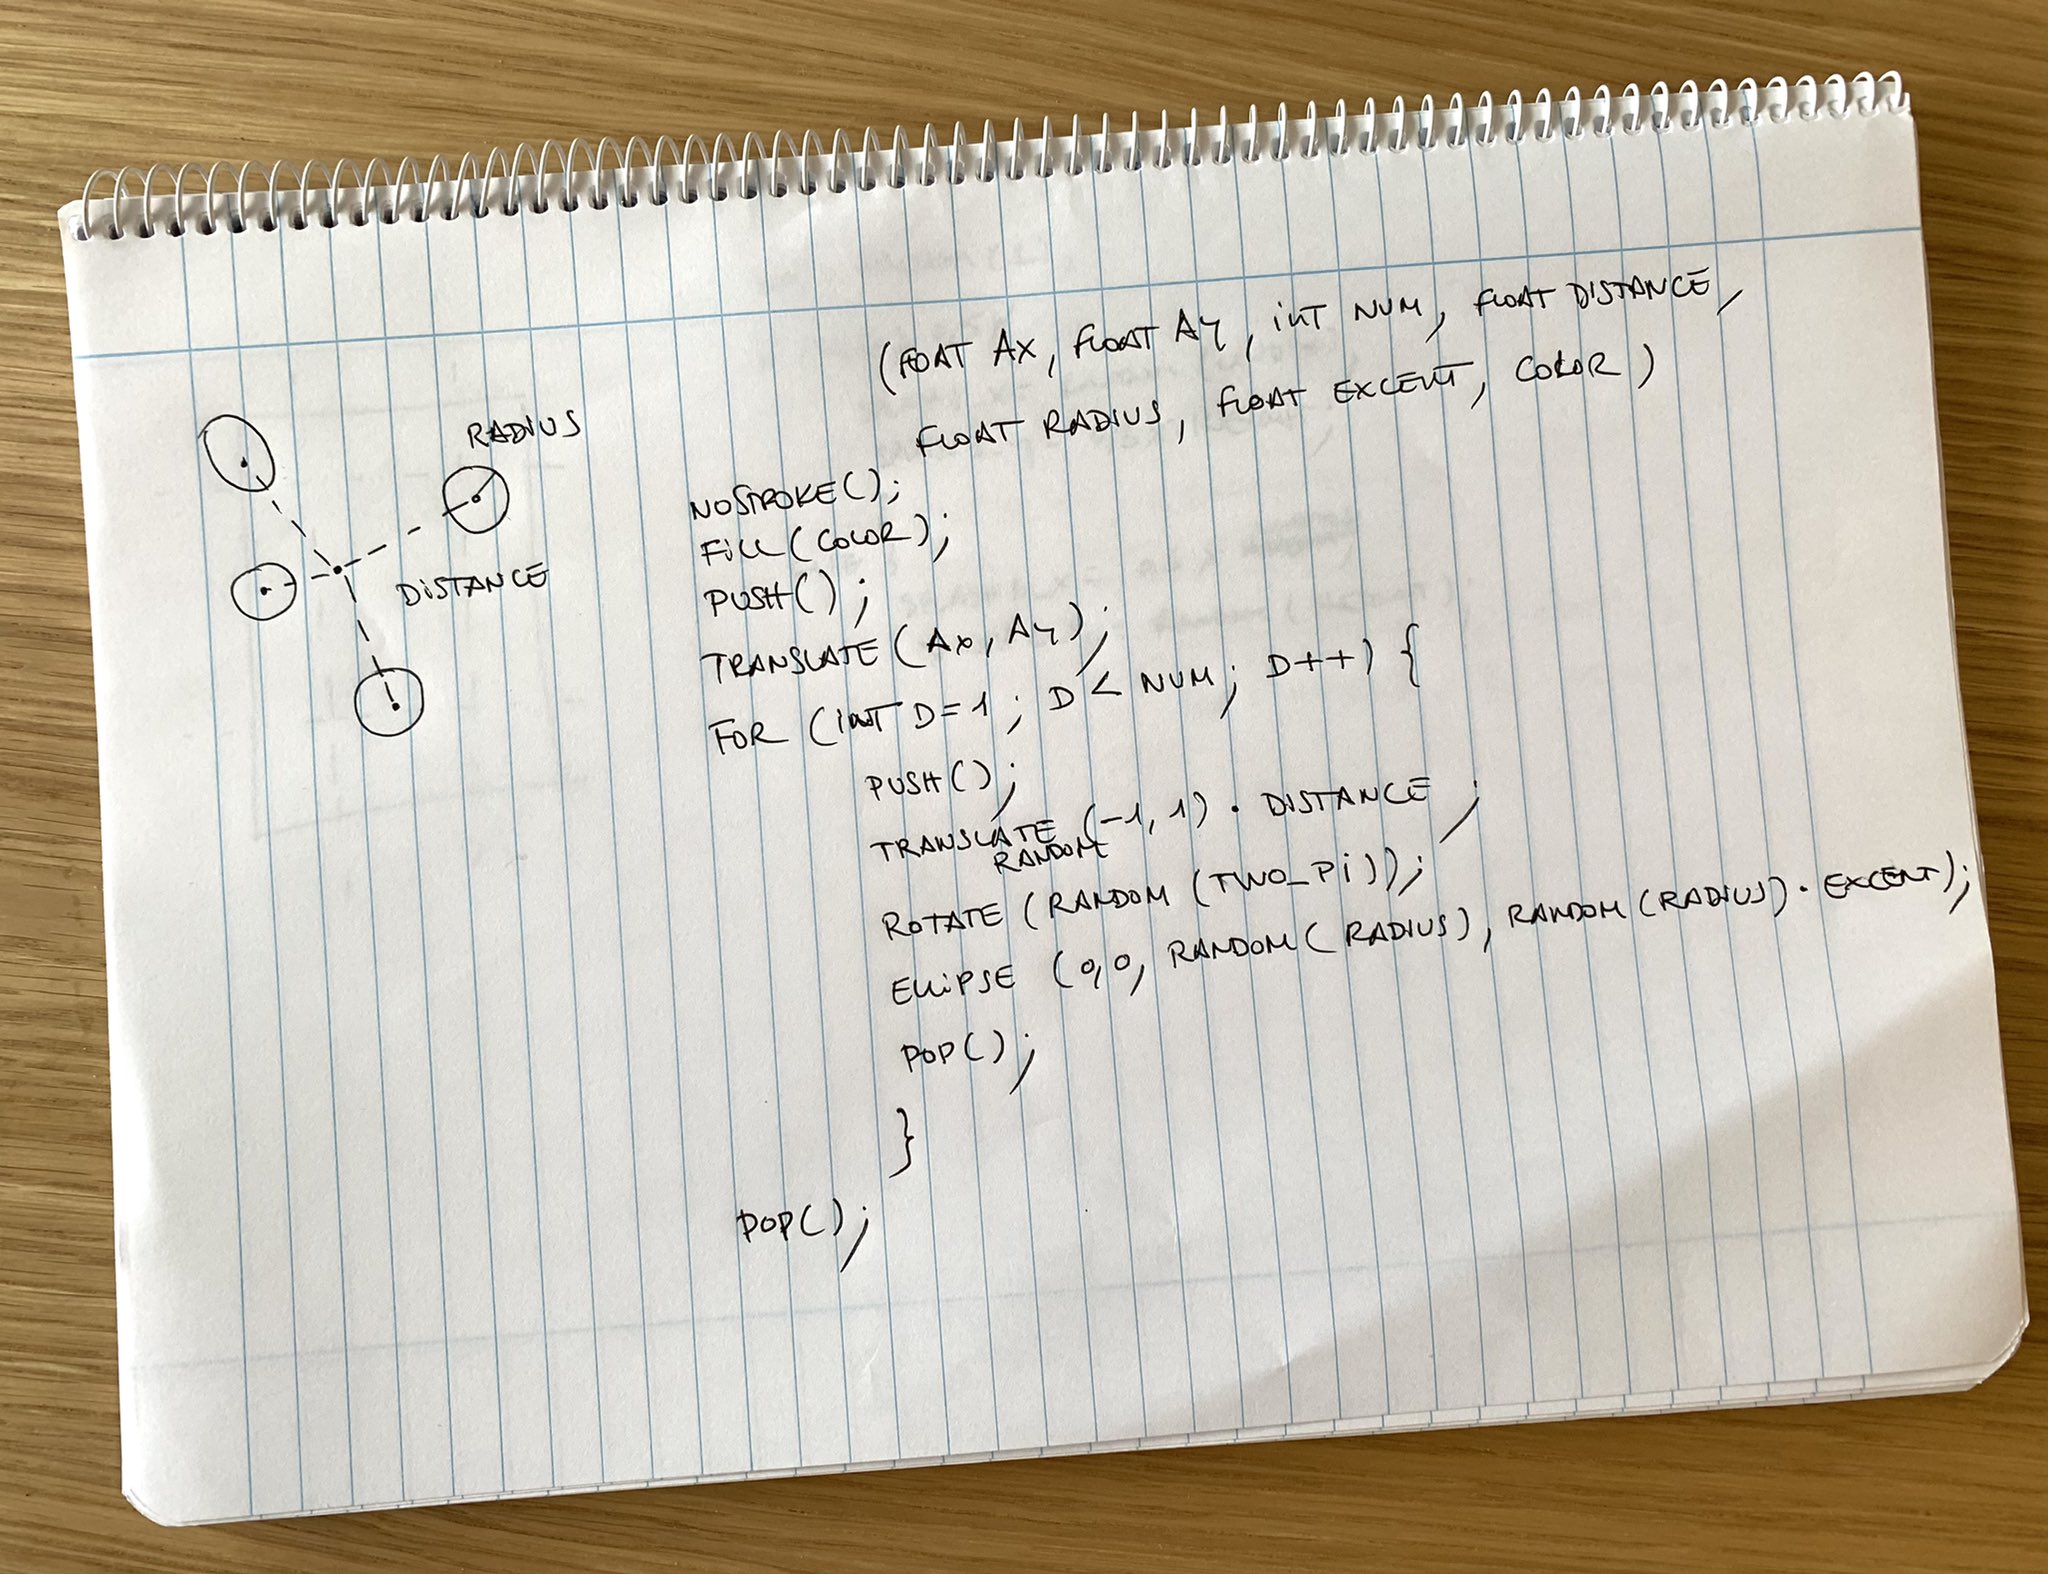 (FOAT AX, FLOAT AY, INT NUM, FLOAT DISTANCE,
FLOAT RADIUS, FLOAT EXCENT, COLOR)
RADIUS
DISTANCE
NOSTROKE();
FILL(COLOR);
PUSH();
TRANSLATE (AX, AY);
FOR (INT D=1; D < NUM; D++) {
PUSH();
TRANSLATE (-1, 1) · DISTANCE ;
RANDOM
ROTATE (RANDOM (TWO_PI));
ELLIPSE (0,0, RANDOM(RADIUS), RANDOM(RADIUS) · EXCENT);
POP();
}
POP();